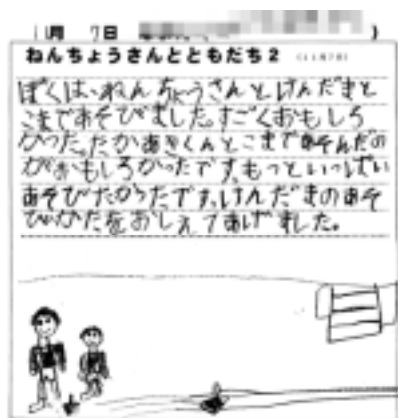 11月 7日
ねんちょうさんとともだち2 (11月7日)
ぼくは、ねんちょうさんとけんだまと
こまであそびました。すごくおもしろ
かった。たかあきくんとこまであそんだの
がおもしろかったです。もっといっぱい
あそびたかったです。けんだまのあそ
びかたをおしえてあげました。